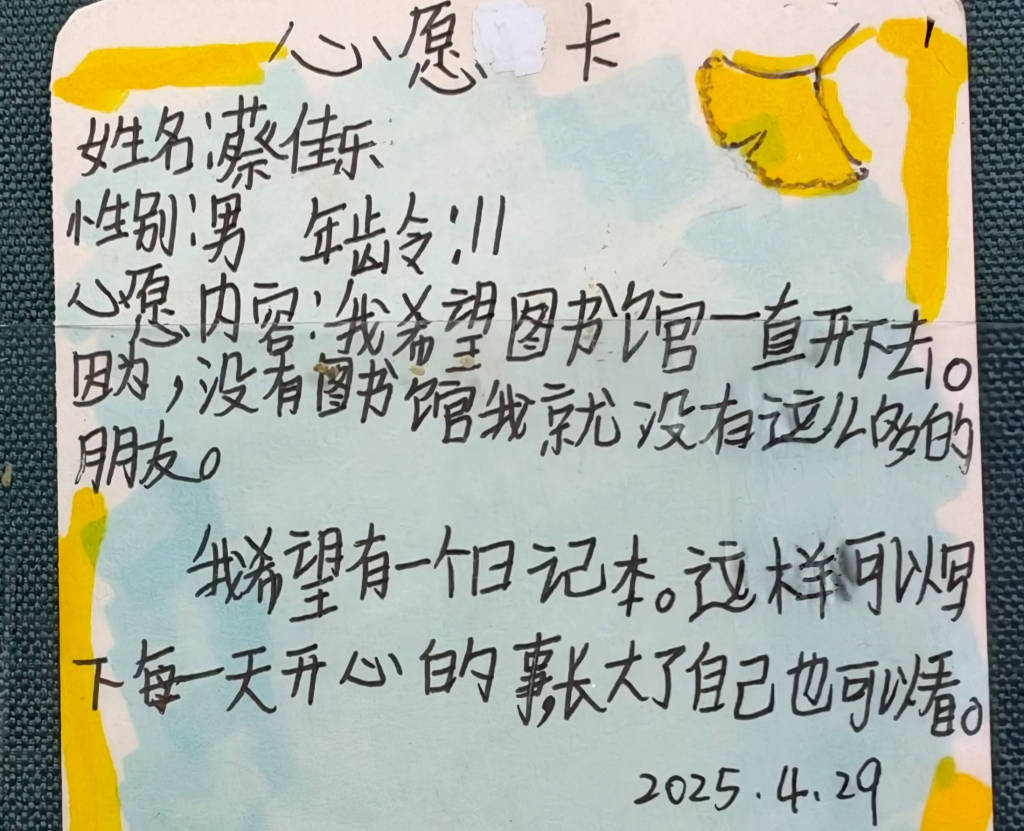 心愿卡
姓名:蔡佳乐
性别:男 年龄:11
心愿内容:我希望图书馆一直开下去。
因为,没有图书馆我就没有这么多的
朋友。
我希望有一个日记本。这样可以写
下每一天开心的事,长大了自己也可以看。
2025.4.29